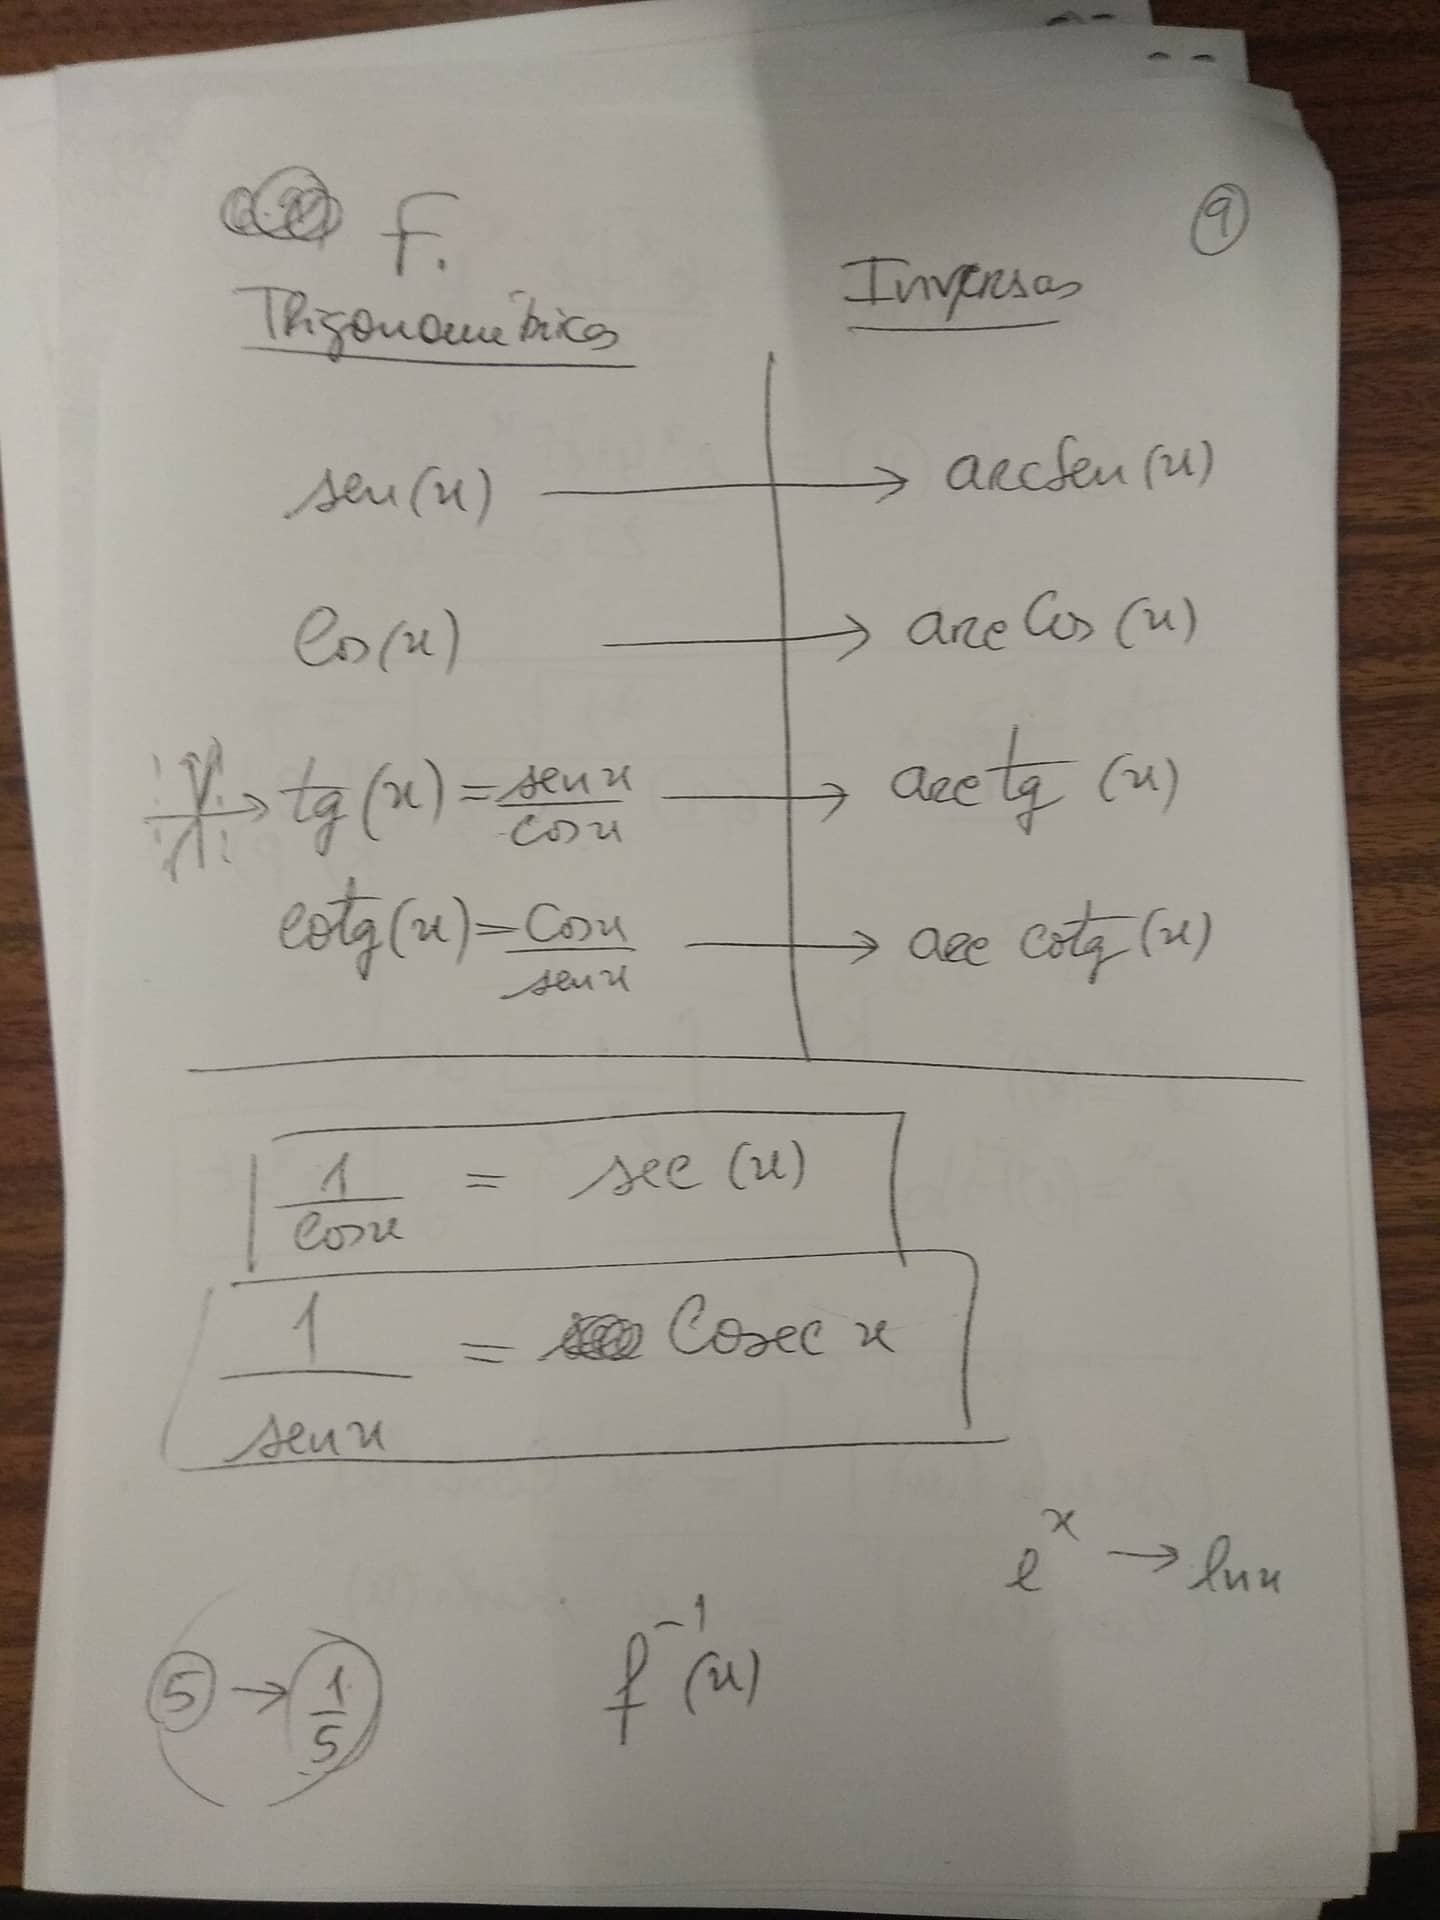 9
F.
Trigonométricas
Inversas
sen(x) → arcsen(x)
cos(x) → arc cos(x)
→ tg(x) = sen x / cos x → arc tg (x)
cotg(x) = cos x / sen x → arc cotg(x)
1 / cos x = sec (x)
1 / sen x = Cosec x
e^x → ln x
5 → 1/5
f^-1(x)